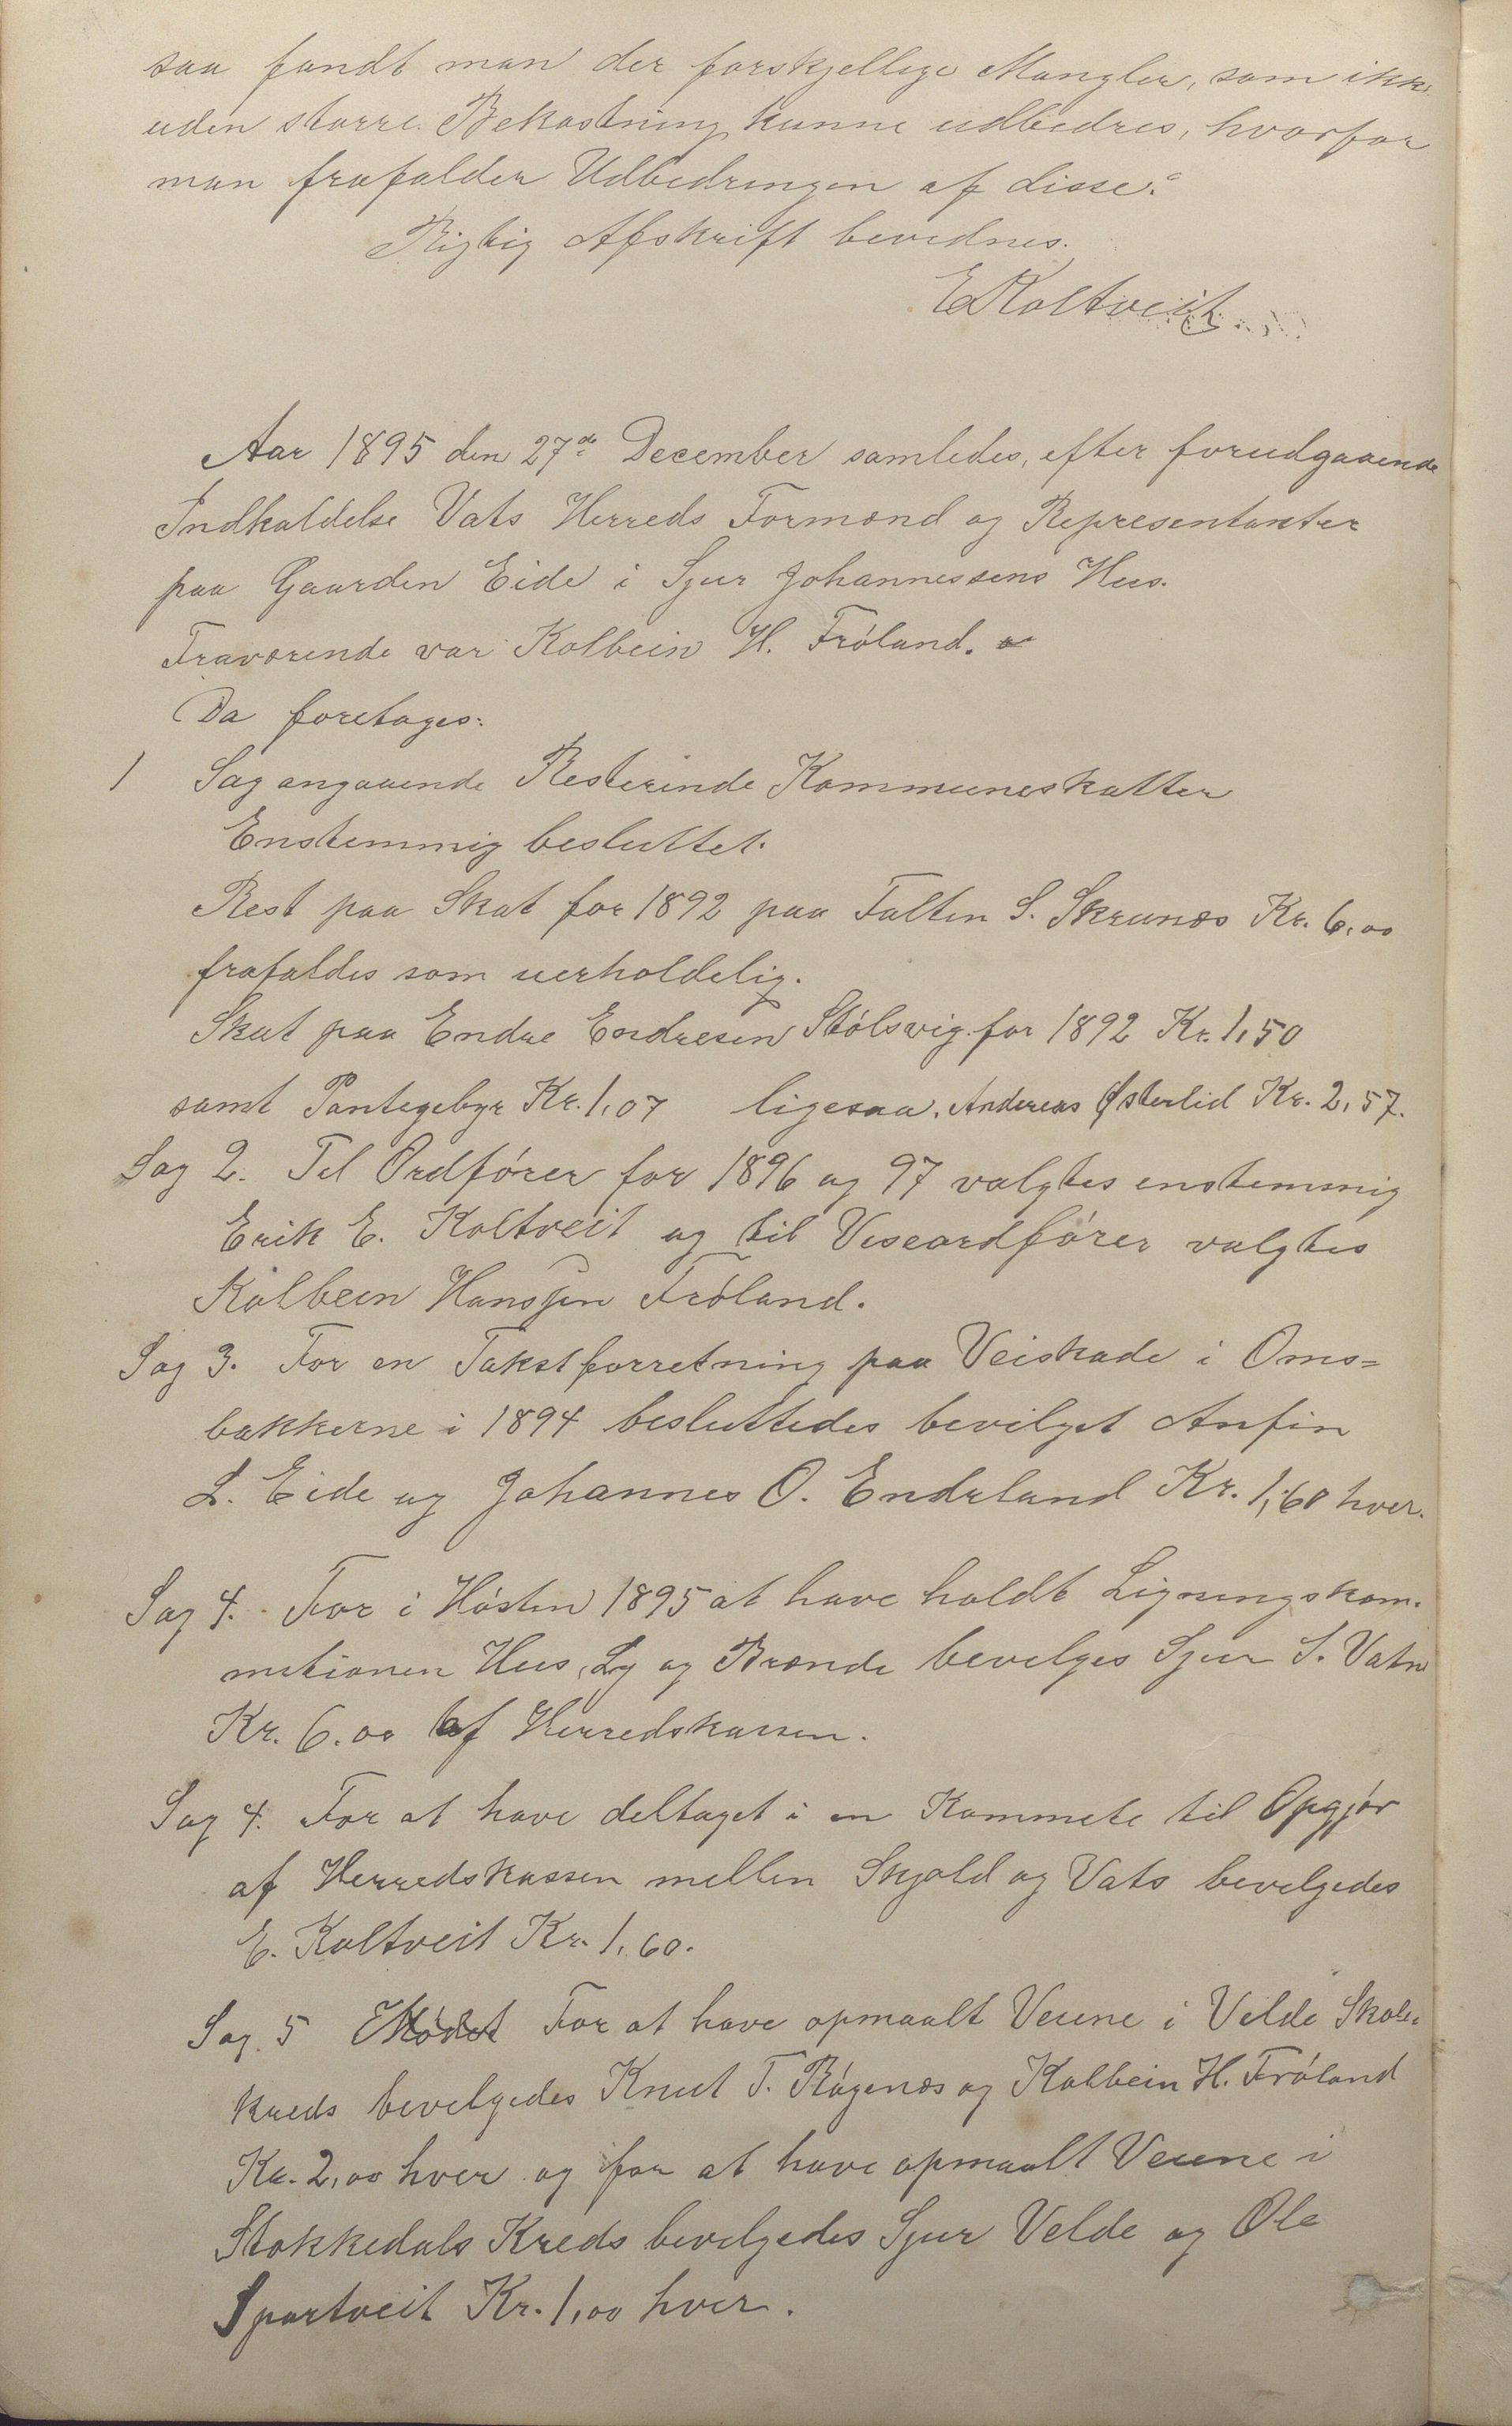 saa fandt man der forskjellige Mangler, som ikke
uden større Bekostning kunne udbedres, hvorfor
man frafalder Udbedringen af disse."
Rigtig Afskrift bevidnes.
E Koltveit
Aar 1895 den 27de December samledes, efter forudgaaende
Indkaldelse Vats Herreds Formænd og Representanter
paa Gaarden Eide i Sjur Johannessens Hus.
Fraværende var Kolbein H. Fröland.
Da foretages:
1 Sag angaaende Resterende Kommuneskatter
Enstemmig besluttet.
Rest paa Skat for 1892 paa Falten S. Skrunæs Kr. 6,00
frafaldes som uerholdelig.
Skat paa Endre Endresen Stölsvig for 1892 Kr. 1,50
samt Pantegebyr Kr. 1,07 ligesaa. Andereas Østerlid Kr. 2,57.
Sag 2. Til Ordförer for 1896 og 97 valgtes enstemmig
Erik E. Koltveit og til Viseordförer valgtes
Kolbein Hanssen Fröland.
Sag 3. For en Takstforretning paa Veiskade i Oms=
bakkerne i 1894 besluttedes bevilget Anfin
L. Eide og Johannes O. Endreland Kr. 1,60 hver.
Sag 4. For i Hösten 1895 at have holdt Ligningskom-
mitionen Hus, Ly og Brænde bevilges Sjur S. Vatne
Kr. 6.00 af Herredskassen.
Sag 4. For at have deltaget i en Kommete til Opgjör
af Herredskassen mellen Skjold og Vats bevilgedes
E. Koltveit Kr. 1,60.
Sag 5 For at have opmaalt Veiene i Velde Skole-
kreds bevilgedes Knut T. Rögenæs og Kolbein H. Fröland
Kr. 2,00 hver og for at have opmaalt Veiene i
Stokkedals Kreds bevilgedes Sjur Velde og Ole
Spartveit Kr. 1,00 hver.